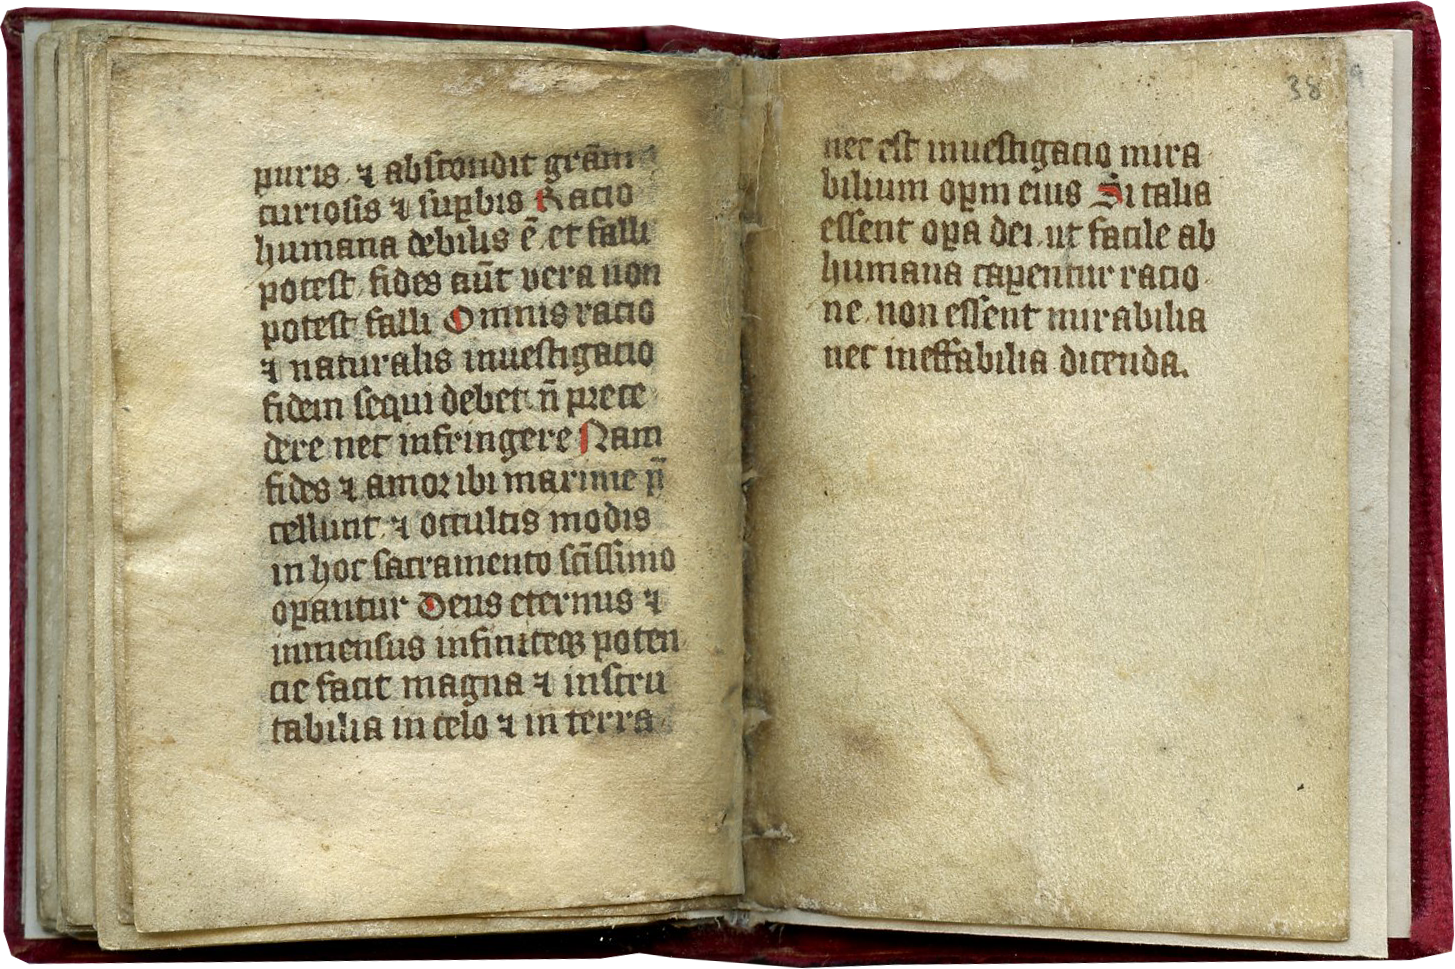 puris ⁊ abscondit grãm a
curiosis ⁊ suꝑbis Racio
humana debilis ẽ et falli
potest fides aũt vera non
potest falli Omnis racio
⁊ naturalis inuestigacio
fidem sequi debet n̄ prece
dere nec infringere Nam
fides ⁊ amor ibi maxime p̄
cellunt ⁊ occultis modis
in hoc sacramento sc̄issimo
oꝑantur Deus eternus ⁊
inmensus infiniteqꝫ poten
cie facit magna ⁊ inscru
tabilia in celo ⁊ in terra
38
nec est inuestigacio mira
bilium oꝑm eius Si talia
essent oꝑa dei ut facile ab
humana caꝑentur racio
ne non essent mirabilia
nec ineffabilia dicenda.